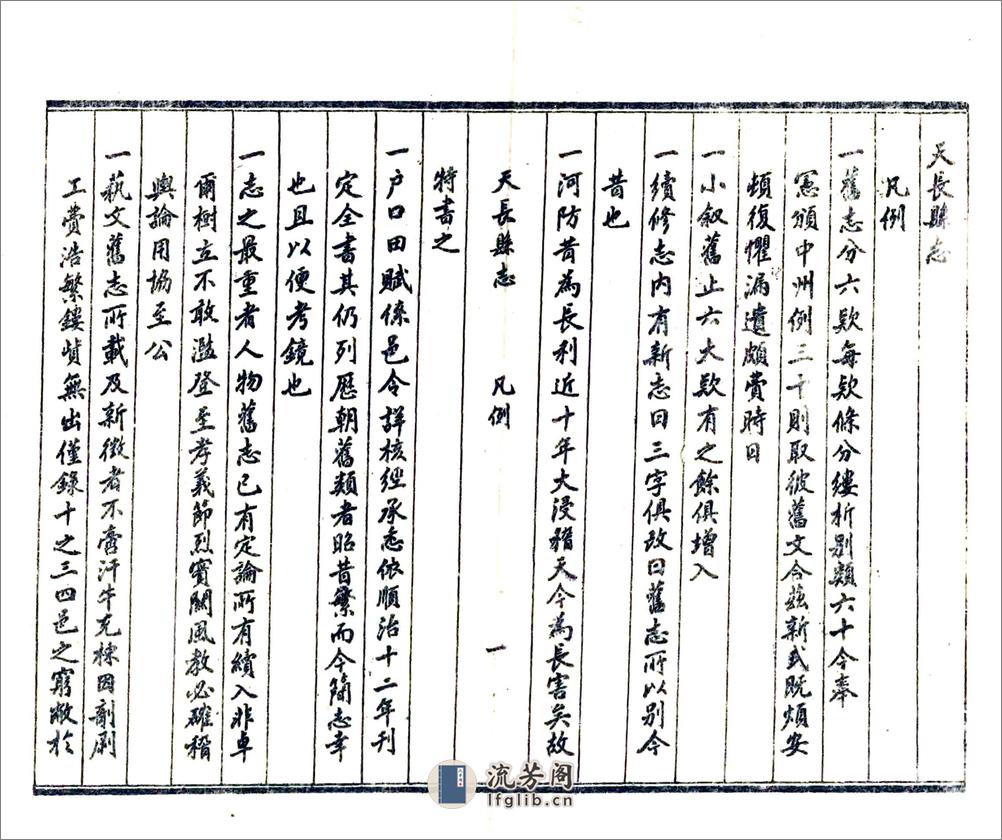 天長縣志
凡例
一舊志分六欵每欵條分縷析別類六十今奉
憲頒中州例三十則取彼舊文合茲新式既煩安
頓復懼漏遺頗費時日
一小叙舊止六大欵有之餘俱增入
一續修志內有新志曰三字俱改曰舊志所以別今
昔也
一河防昔為長利近十年大浸稽天今為長害矣故
天長縣志 凡例 一
特書之
一户口田賦係邑令詳核經承悉依順治十二年刊
定全書其仍列歷朝舊類者昭昔繁而今簡志幸
也且以便考鏡也
一志之最重者人物舊志已有定論所有續入非卓
爾樹立不敢濫登至孝義節烈實關風教必確稽
輿論用協至公
一藝文舊志所載及新徵者不啻汗牛充棟因剞劂
工費浩繁鏤資無出僅錄十之三四邑之窮敝於
流芳阁
lfglib.cn